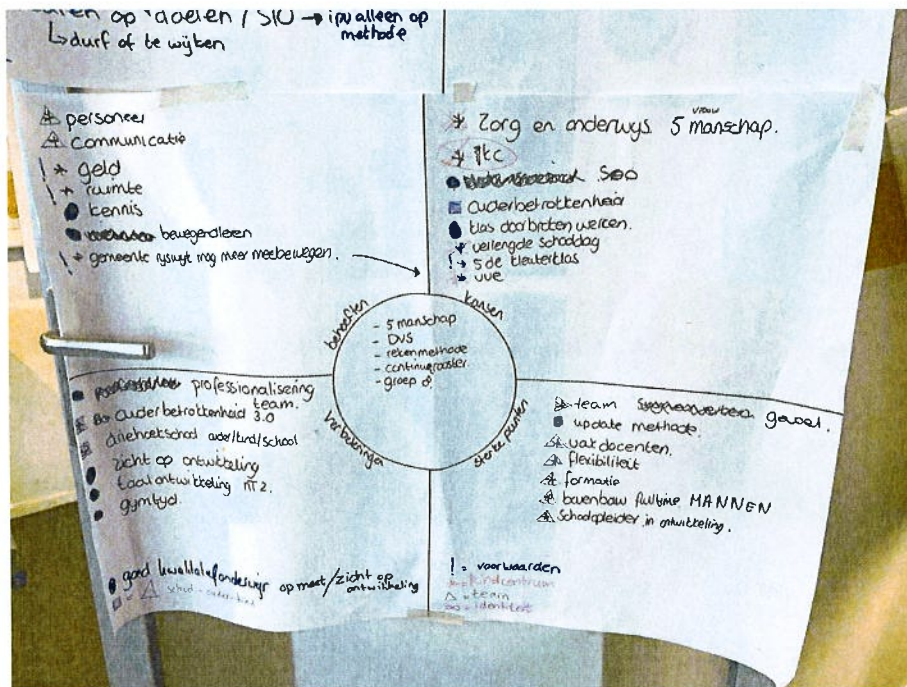 op doelen / SLO → ipv alleen op
methode
↳ durf af te wijken
personeel
communicatie
! * geld
! * ruimte
kennis
bewegendleren
! * gemeente ryswyk mog meer meebewegen.
* Zorg en onderwys 5 manschap.
vrouw
* IKC
SOO
Ouderbetrokkenheid
klas doorbroken werken.
* verlengde schooldag
! * 5 de kleuterklas
* VVE
behoeften
kansen
- 5 manschap
- DVS
- rekenmethode
- continurooster
- groep 8
verbeteringen
sterke punten
professionalisering
team.
Ouderbetrokkenheid 3.0
driehoek school ouder/kind/school
zicht op ontwikkeling
taalontwikkeling NT2.
gymtyd.
goed kwalitatief onderwijs op maat/zicht op
ontwikkeling
team gevoel.
update methode.
vakdocenten.
flexibiliteit
formatie
bovenbouw fulltime MANNEN
Schoolopleider in ontwikkeling.
! = voorwaarden
* = kindcentrum
△ = team
= identiteit